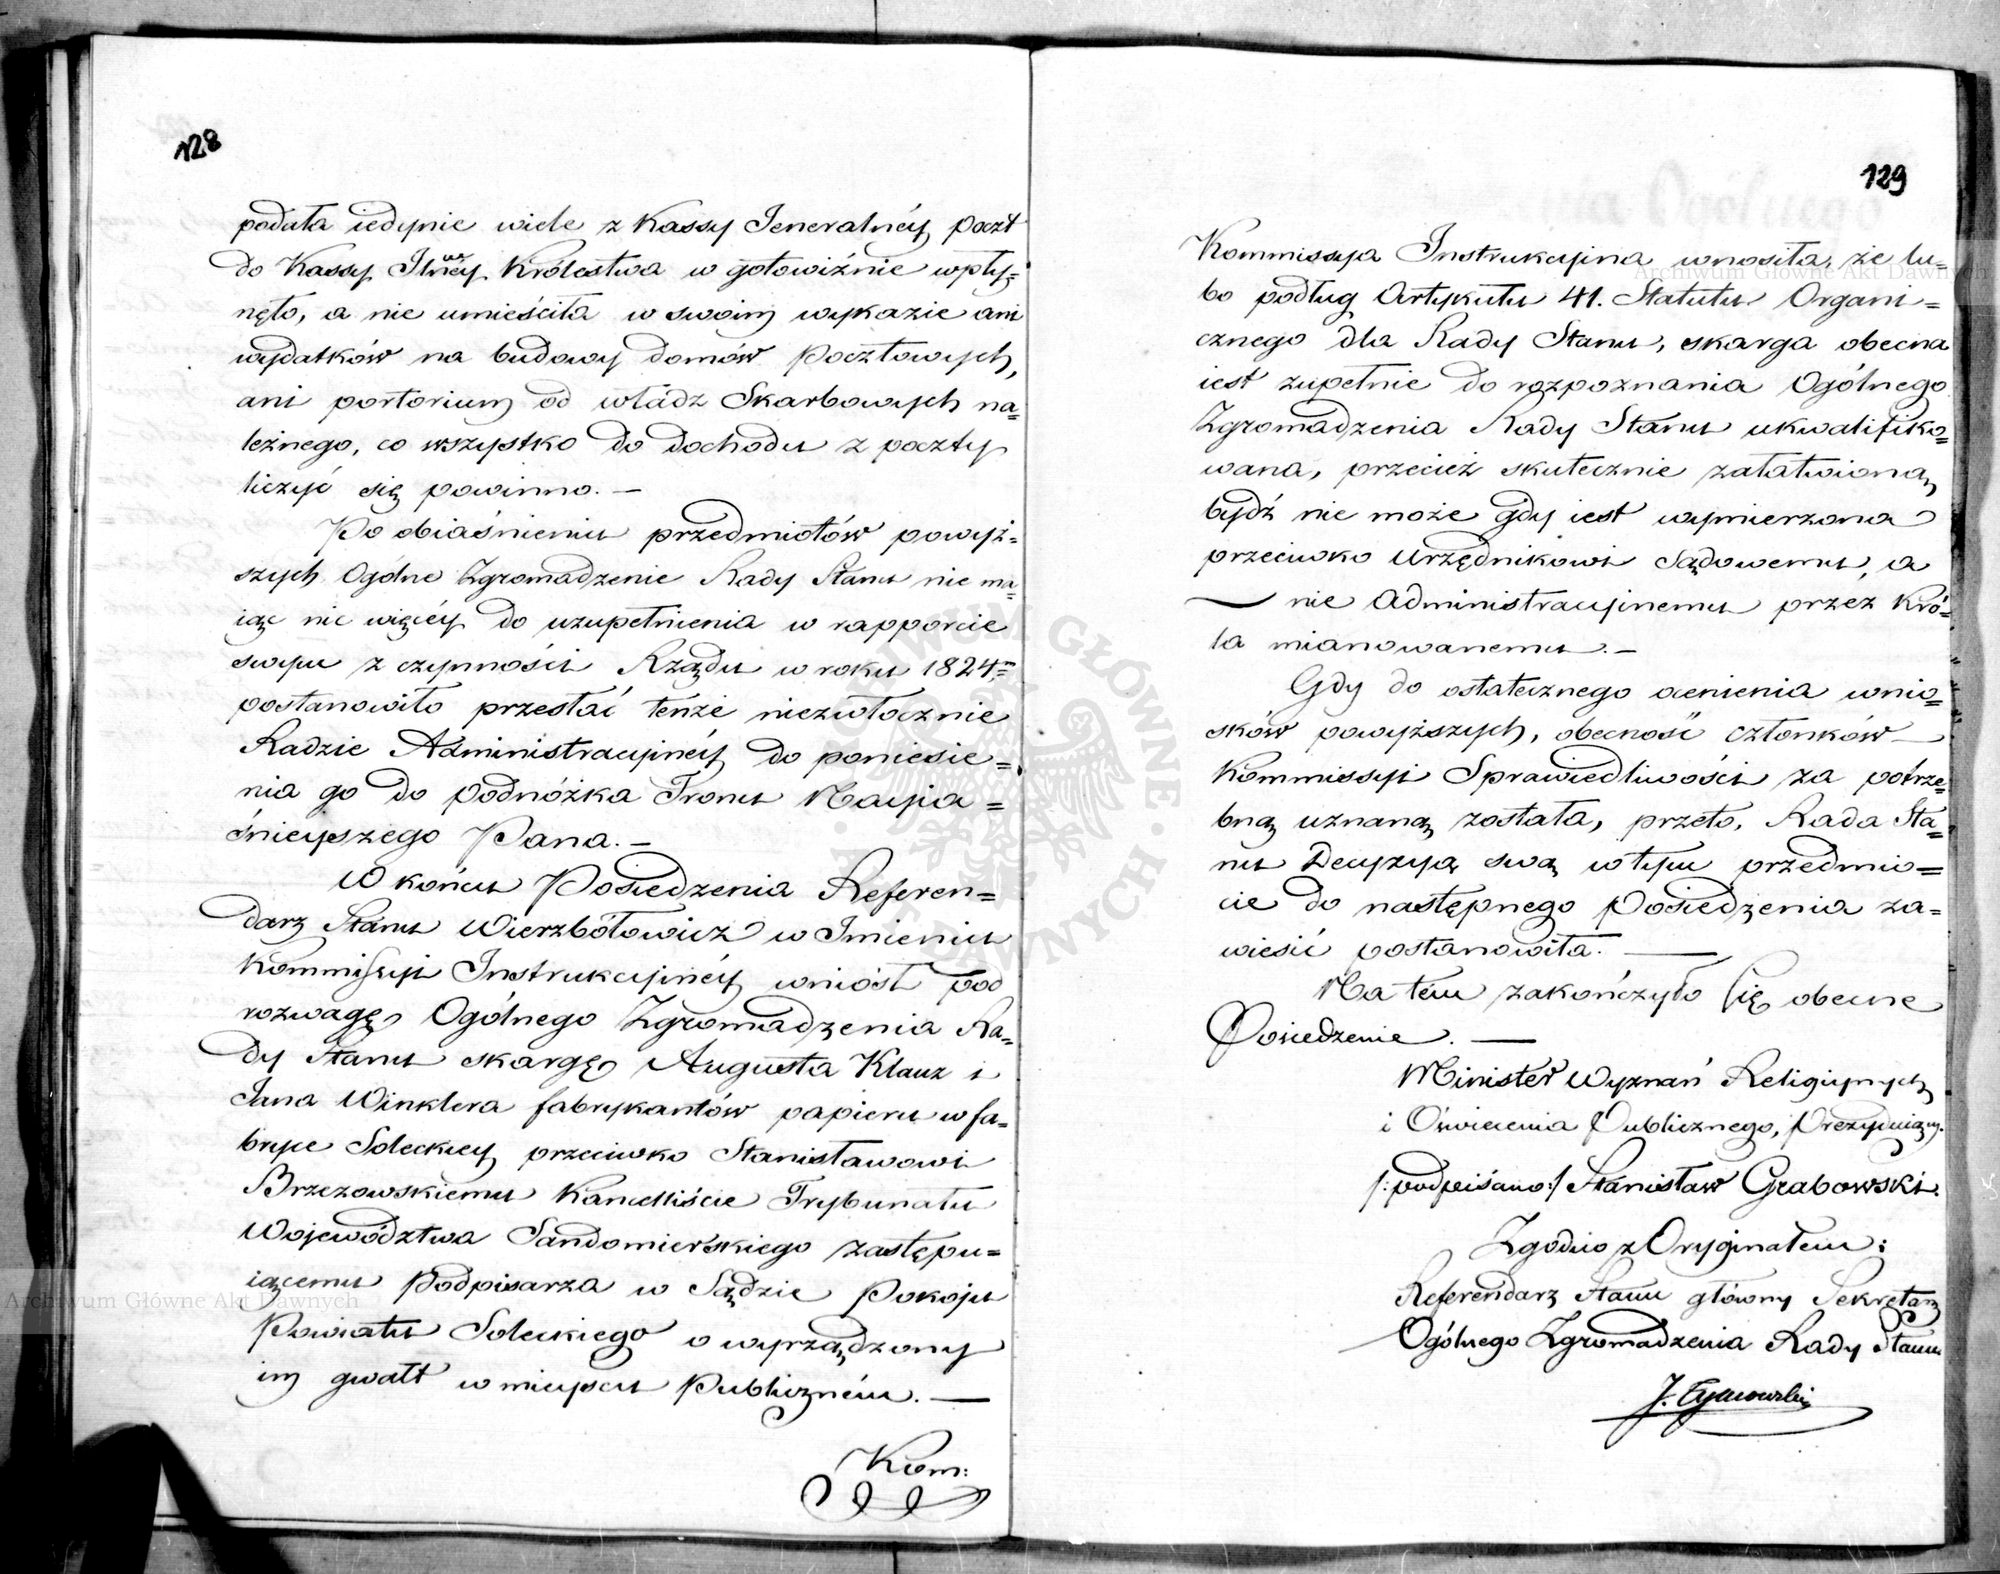 128
podała iedynie wiele z Kassy Jeneralnéy poczt
do Kassy Jlnéy Królestwa w gotowiźnie wpły=
nęło, a nie umieściła w swoim wykazie ani
wydatków na budowy domów Pocztowych,
ani portorium od władz Skarbowych na=
leżnego, co wszystko do dochodu z poczty
liczyć się powinno. —
Po obiaśnieniu przedmiotów powyż=
szych Ogólne Zgromadzenie Rady Stanu nie ma=
iąc nic więcéy do uzupełnienia w rapporcie
swym z czynności Rządu w roku 1824.
postanowiło przesłać tenże niezwłocznie
Radzie Administracyinéy do poniesie=
nia go do podnóżka Tronu Nayia=
śnieyszego Pana. —
W końcu Posiedzenia Referen=
darz Stanu Wierzbołowicz w Imieniu
Kommissyi Instrukcyinéy wniósł pod
rozwagę Ogólnego Zgromadzenia Ra=
dy Stanu skargę Augusta Klauz i
Jana Winklera fabrykantów papieru w fa=
bryce Soleckiey przeciwko Stanisławowi
Brzezowskiemu Kancelliście Trybunału
Województwa Sandomierskiego zastępu=
iącemu Podpisarza w Sądzie Pokoju
Powiatu Soleckiego o wyrządzony
im gwałt w mieyscu Publiczném. —
Kom:
129
Kommissya Instrukcyina wnosiła, że lu=
bo podług Artykułu 41. Statutu Organi=
cznego dla Rady Stanu, skarga obecna
iest zupełnie do rozpoznania Ogólnego
Zgromadzenia Rady Stanu ukwalifiko=
wana, przecież skutecznie załatwioną
bydź nie może gdy iest wymierzona
przeciwko Urzędnikowi Sądowemu, a
— nie Administracyinemu przez Kró=
la mianowanemu. —
Gdy do ostatecznego ocenienia wnio=
sków powyższych, obecność członków —
Kommissyi Sprawiedliwości za potrze=
bną uznaną została, przeto, Rada Sta=
nu Decyzyą swą w tym przedmio=
cie do następnego Posiedzenia za=
wiesić postanowiła. —
Na tem zakończyło się obecne
Posiedzenie. —
Minister Wyznań Religiynych
i Oświecenia Publicznego, Prezyduiący.
/:podpisano:/ Stanisław Grabowski.
Zgodno z Oryginałem:
Referendarz Stanu główny Sekretarz
Ogólnego Zgromadzenia Rady Stanu
J.
Archiwum Główne Akt Dawnych
Archiwum Główne Akt Dawnych
ARCHIWUM GŁÓWNE AKT DAWNYCH